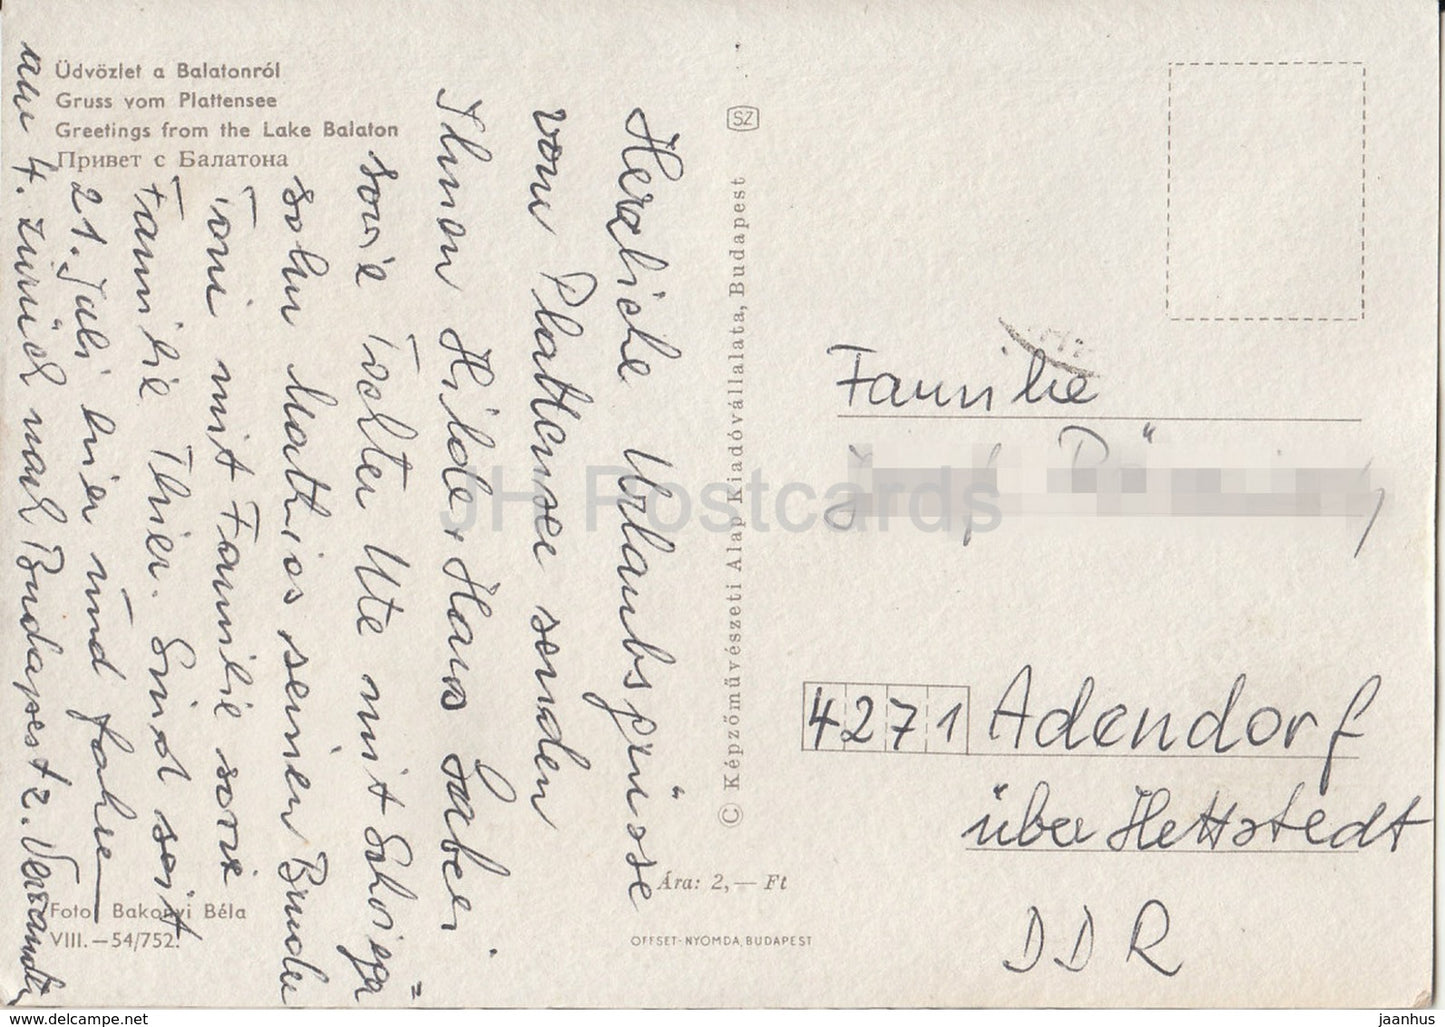 Üdvözlet a Balatonról
Gruss vom Plattensee
Greetings from the Lake Balaton
Привет с Балатона
Herzliche Urlaubsgrüsse
vom Plattensee senden
Ihnen Hilde, Hans
sowie Tochter Ute mit Schwiege=
sohn Mathias seinen Bruder
Toni mit Familie sowie
Familie Thier. Sind seit
21. Juli hier und fahren
am 4. zurück nach Budapest z. Verwandten
SZ
© Képzőművészeti Alap Kiadóvállalata, Budapest
Ára: 2,— Ft
OFFSET-NYOMDA, BUDAPEST
Foto: Bakonyi Béla
VIII.—54/752.
Familie
4271 Adendorf
über Hettstedt
DDR
JH Postcards
www.delcampe.net
jaanhus